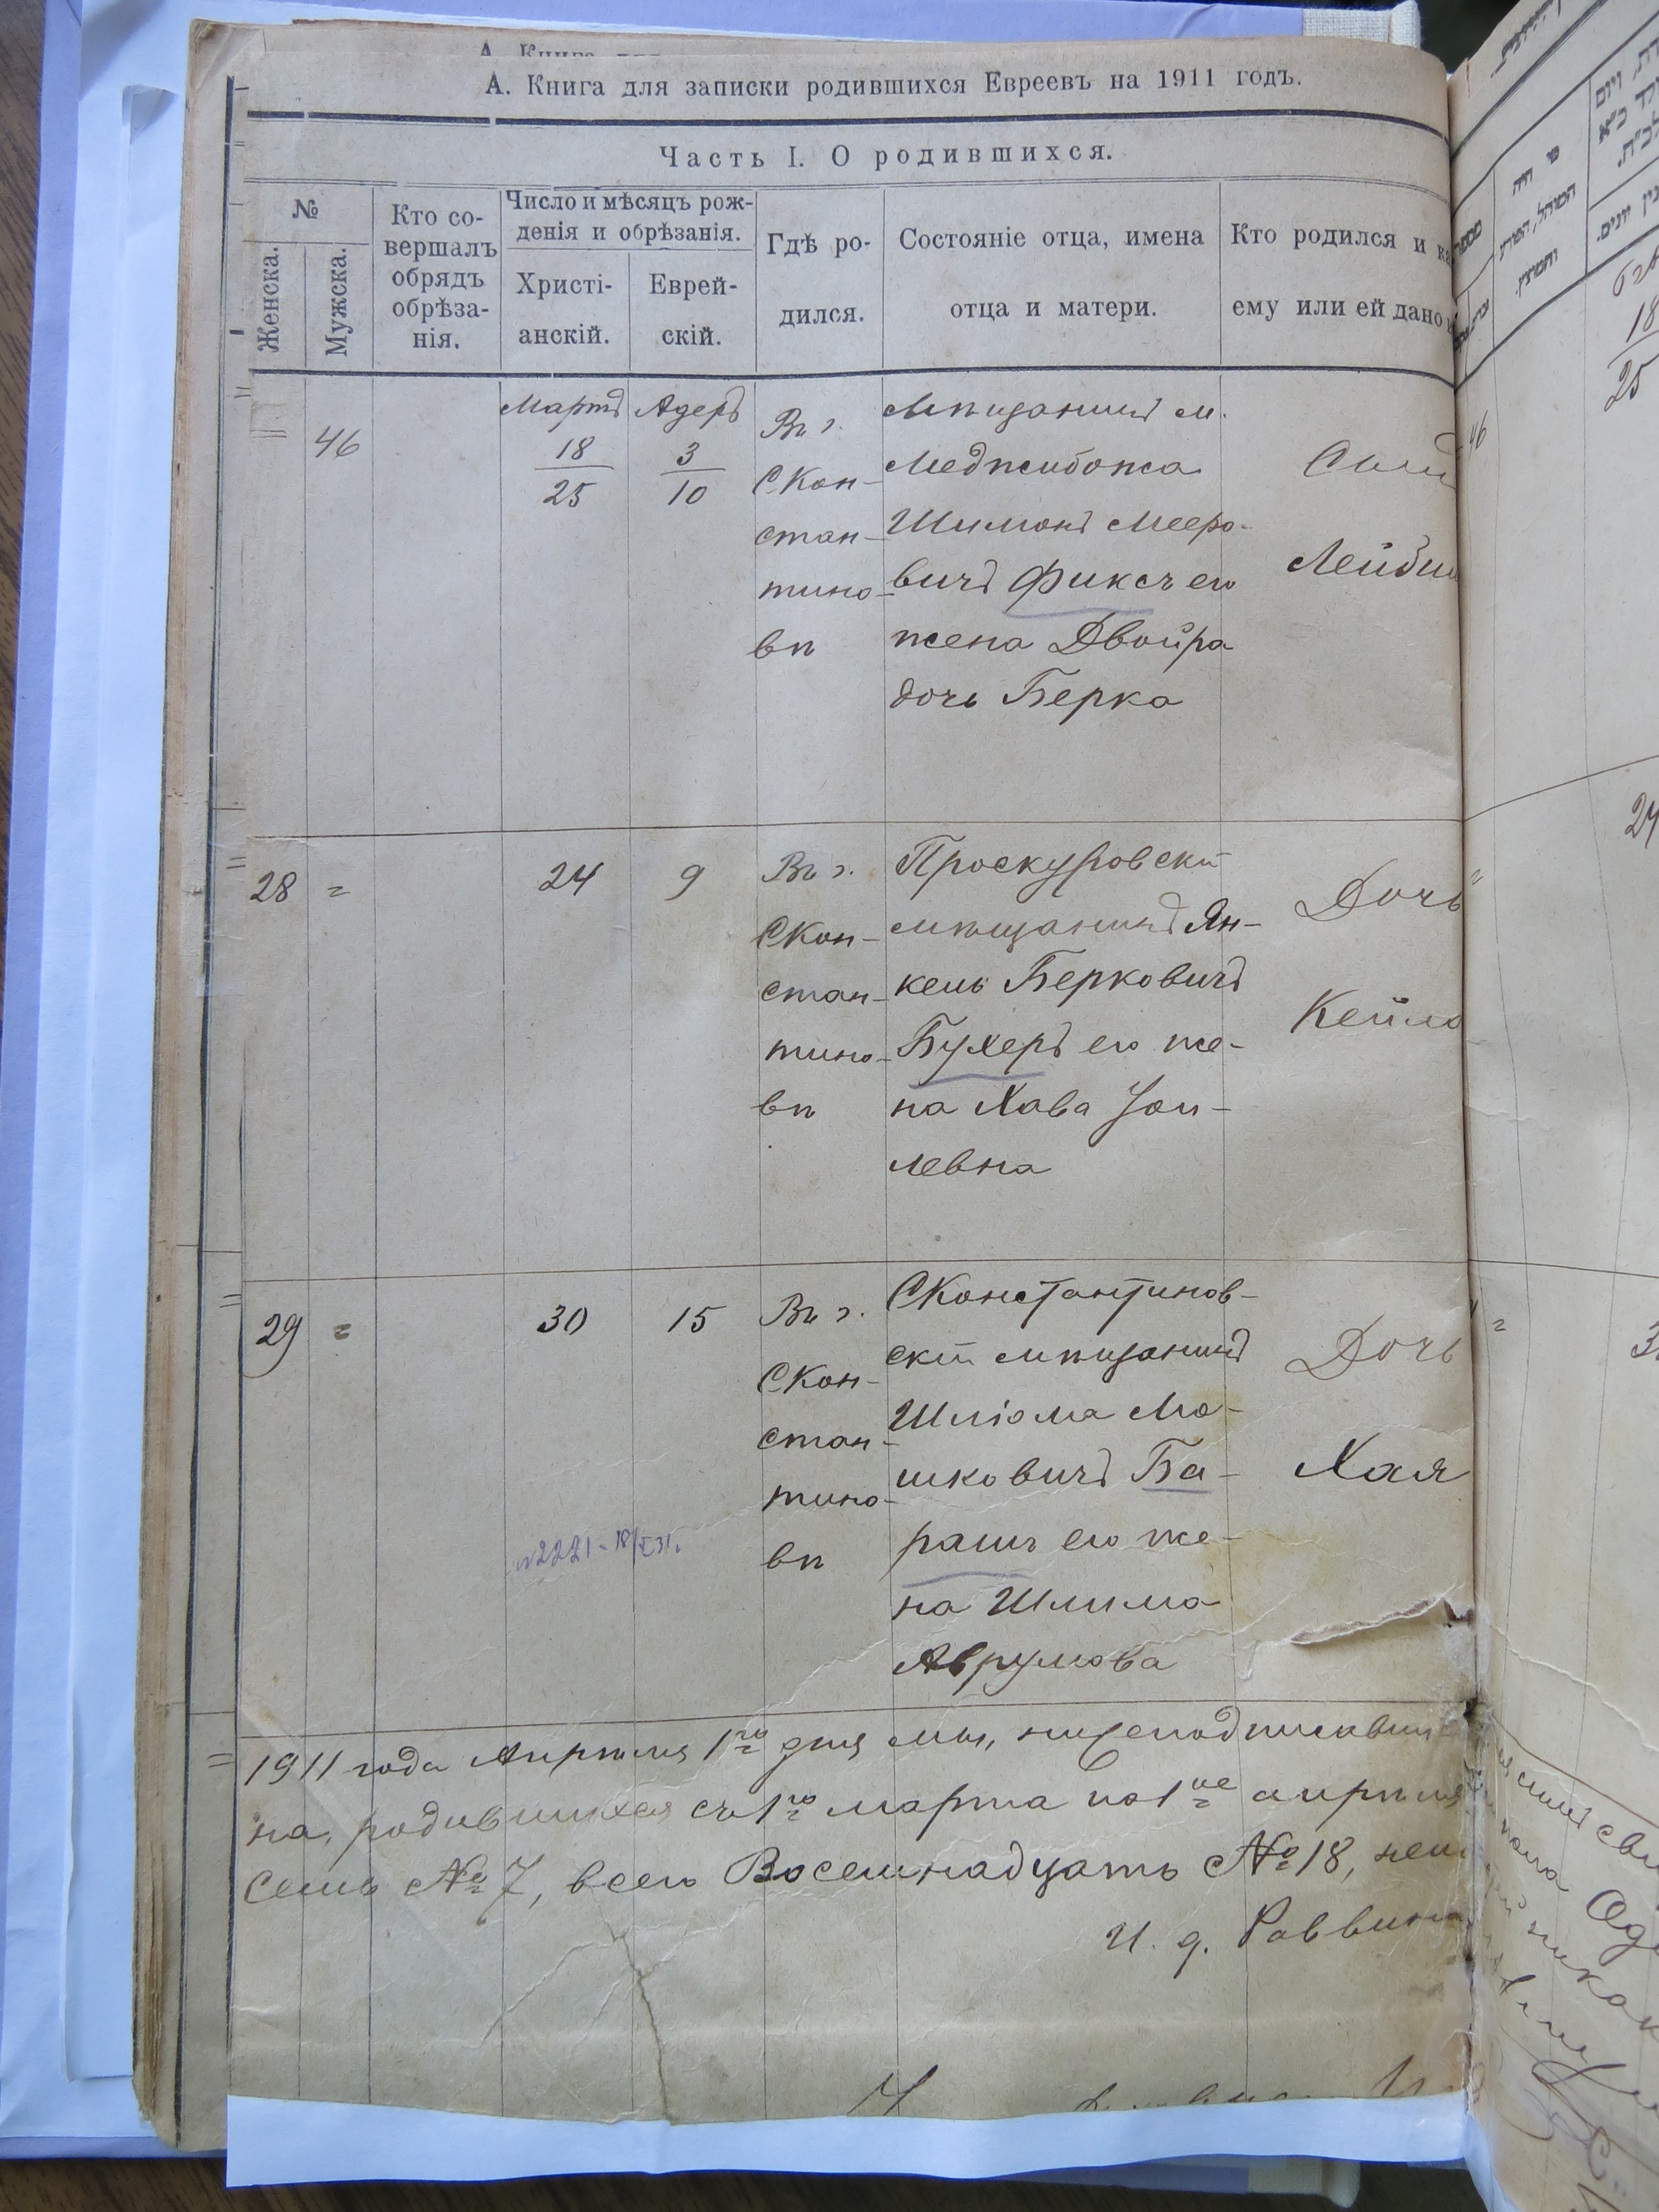 А. Книга для записки родившихся Евреевъ на 1911 годъ.
Часть I. О родившихся.
№
Женска.
Мужска.
Кто со-
вершалъ
обрядъ
обрѣза-
нія.
Число и мѣсяцъ рож-
денія и обрѣзанія.
Христі-
анскій.
Еврей-
скій.
Гдѣ ро-
дился.
Состояніе отца, имена
отца и матери.
Кто родился и ка
ему или ей дано
46
Мартъ
18
25
Адеръ
3
10
Въ г.
СКон-
стан-
тино-
вѣ
Мѣщанинъ м.
Меджибожа
Шимонъ Меero-
вичъ Фиксъ его
жена Двойра
дочь Берка
Сынъ
Лейбиш
28 =
24
9
Въ г.
СКон-
стан-
тино-
вѣ
Проскуровскій
мѣщанинъ Ян-
кель Берковичъ
Бухеръ его же-
на Хава Јои-
левна
Дочь
Кейла
29 =
30
15
Въ г.
СКон-
стан-
тино-
вѣ
СКонстантинов-
скій мѣщанинъ
Шліома Мо-
шковичъ Ба-
рашъ его же-
на Шлима
Аврумова
Дочь
Хая
1911 года Апрѣля 1го дня мы, нижеподписавши
на, родившихся съ 1го марта по 1ое апрѣля
Семь № 7, всего Восемнадцать № 18, неш
И. д. Раввина
46
18
25